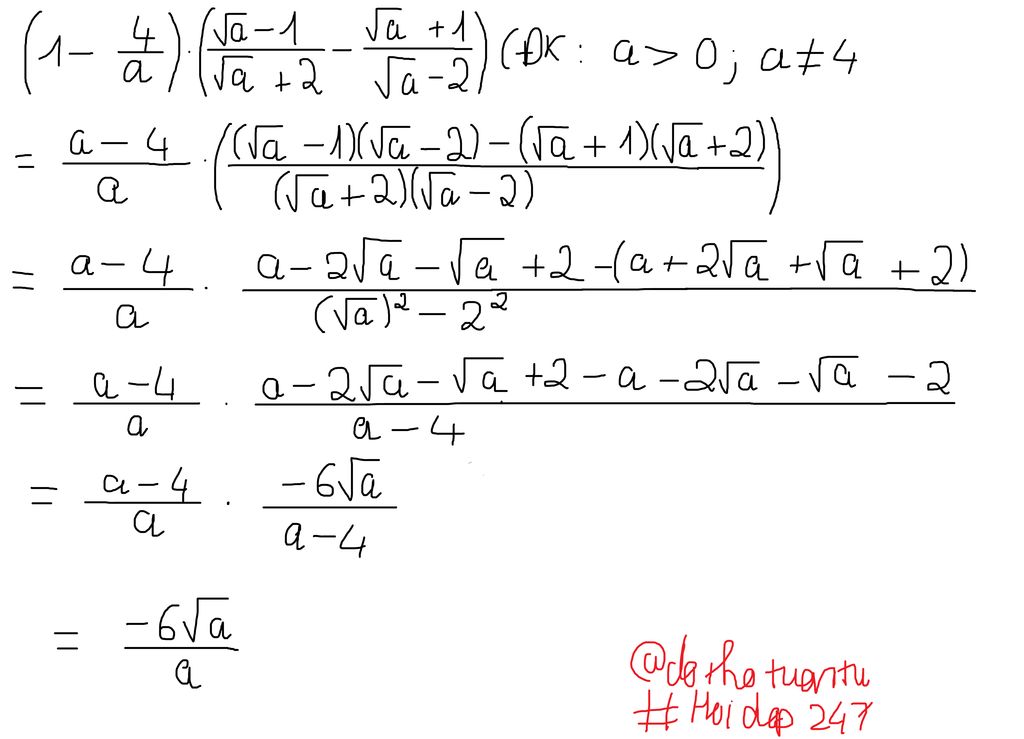 (1 - 4/a) · ((√a - 1)/(√a + 2) - (√a + 1)/(√a - 2)) (ĐK: a > 0; a ≠ 4
= (a - 4)/a · (((√a - 1)(√a - 2) - (√a + 1)(√a + 2))/((√a + 2)(√a - 2)))
= (a - 4)/a · (a - 2√a - √a + 2 - (a + 2√a + √a + 2))/((√a)² - 2²)
= (a - 4)/a · (a - 2√a - √a + 2 - a - 2√a - √a - 2)/(a - 4)
= (a - 4)/a · (-6√a)/(a - 4)
= (-6√a)/a
@dothotuantu
#Hoidap247